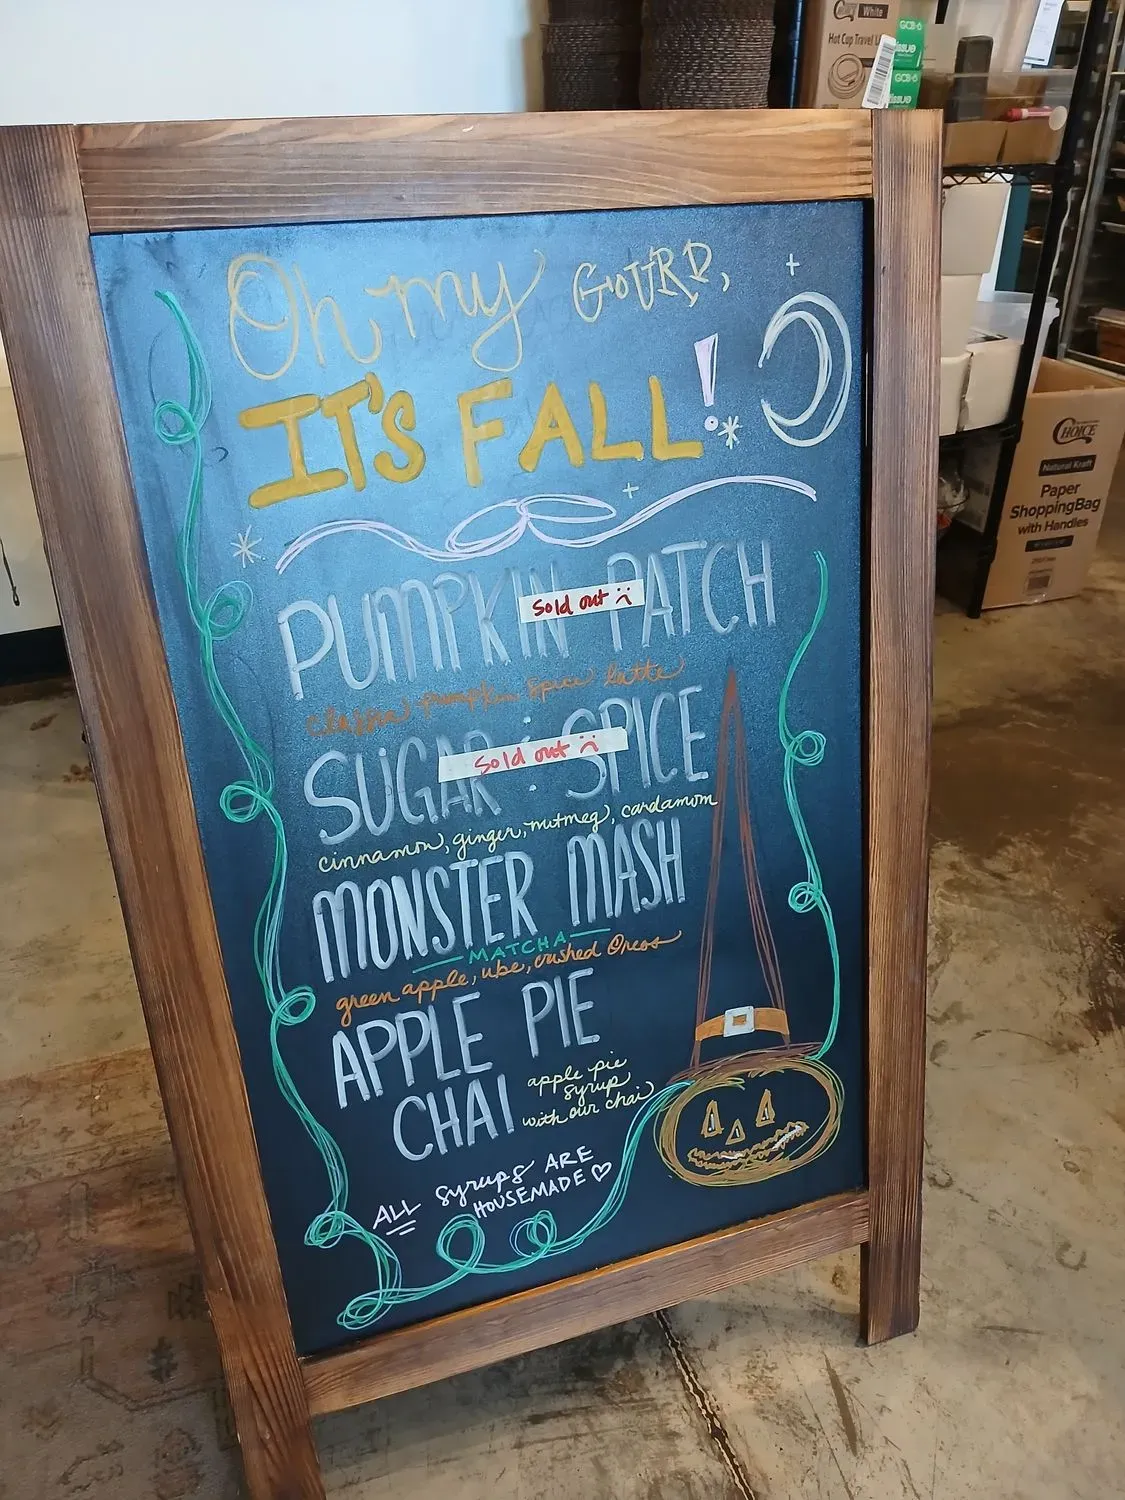 Oh my GOURD,
IT'S FALL!
PUMPKIN PATCH
Sold out :(
classic pumpkin spice latte
SUGAR : SPICE
Sold out :(
cinnamon, ginger, nutmeg, cardamom
MONSTER MASH
MATCHA
green apple, ube, crushed Oreos
APPLE PIE
CHAI
apple pie
syrup
with our chai
ALL syrups ARE
HOUSEMADE ♡
White
Hot Cup Travel
GCB-6
GCB-6
CHOICE
Natural Kraft
Paper
Shopping Bag
with Handles